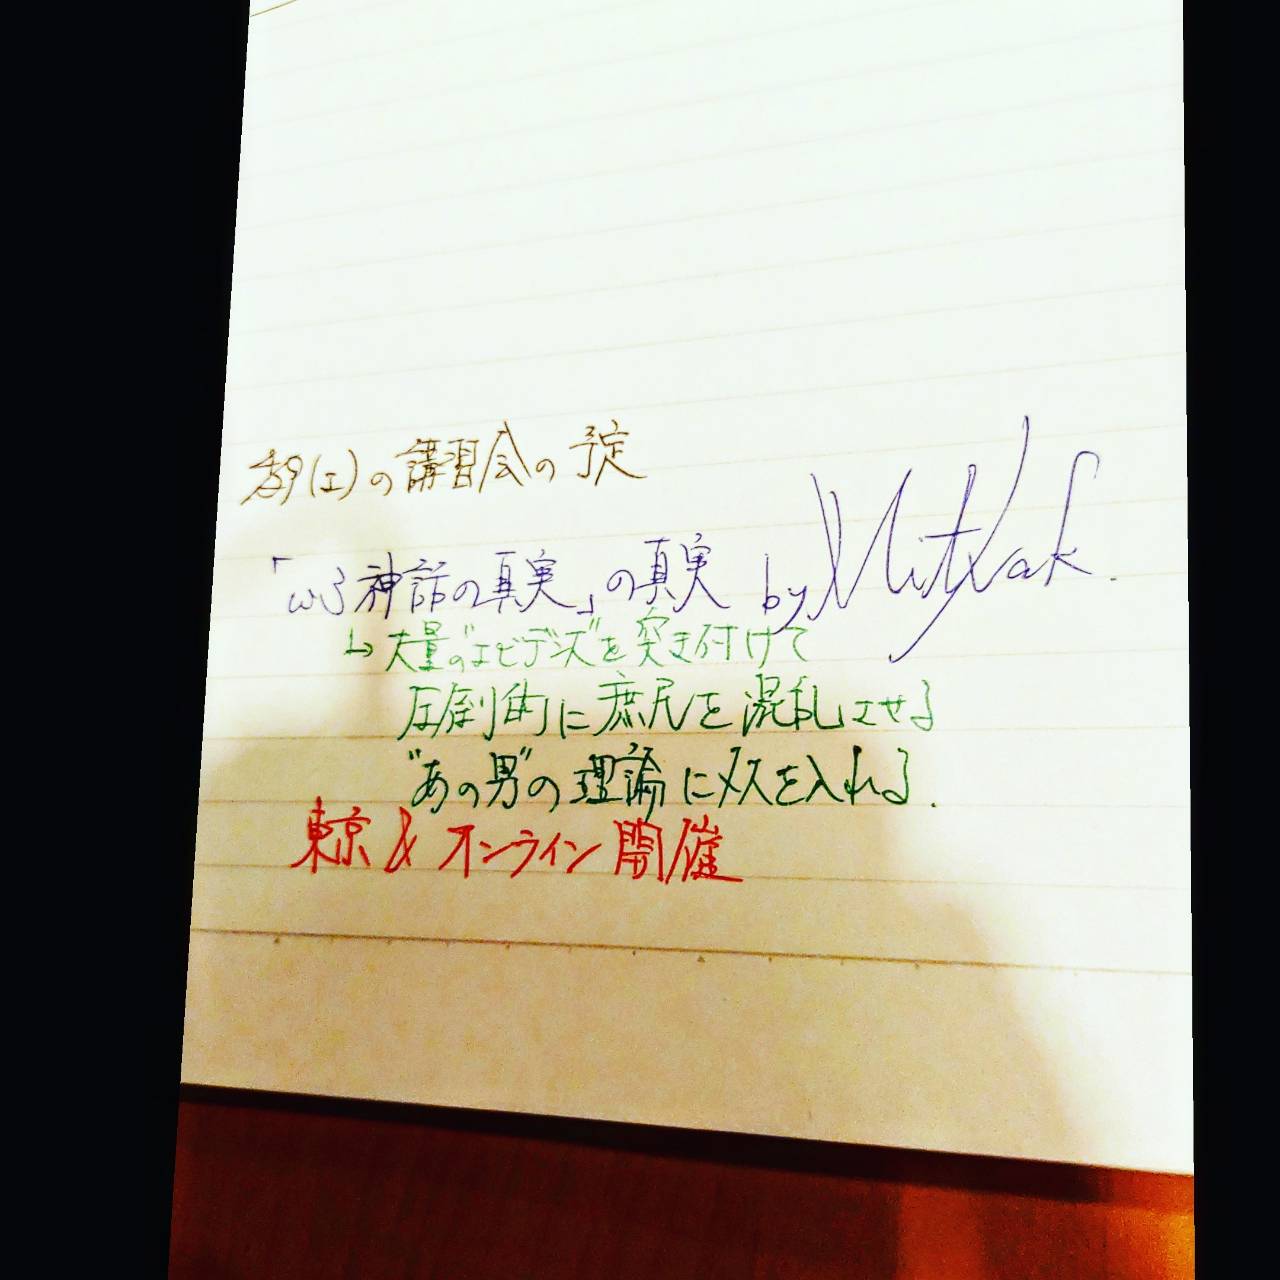 (土)の講習会の予定
「ω3神話の真実」の真実 by
↳大量の"エビデンス"を突き付けて
圧倒的に庶民を混乱させる
"あの男"の理論にメスを入れる.
東京 & オンライン開催